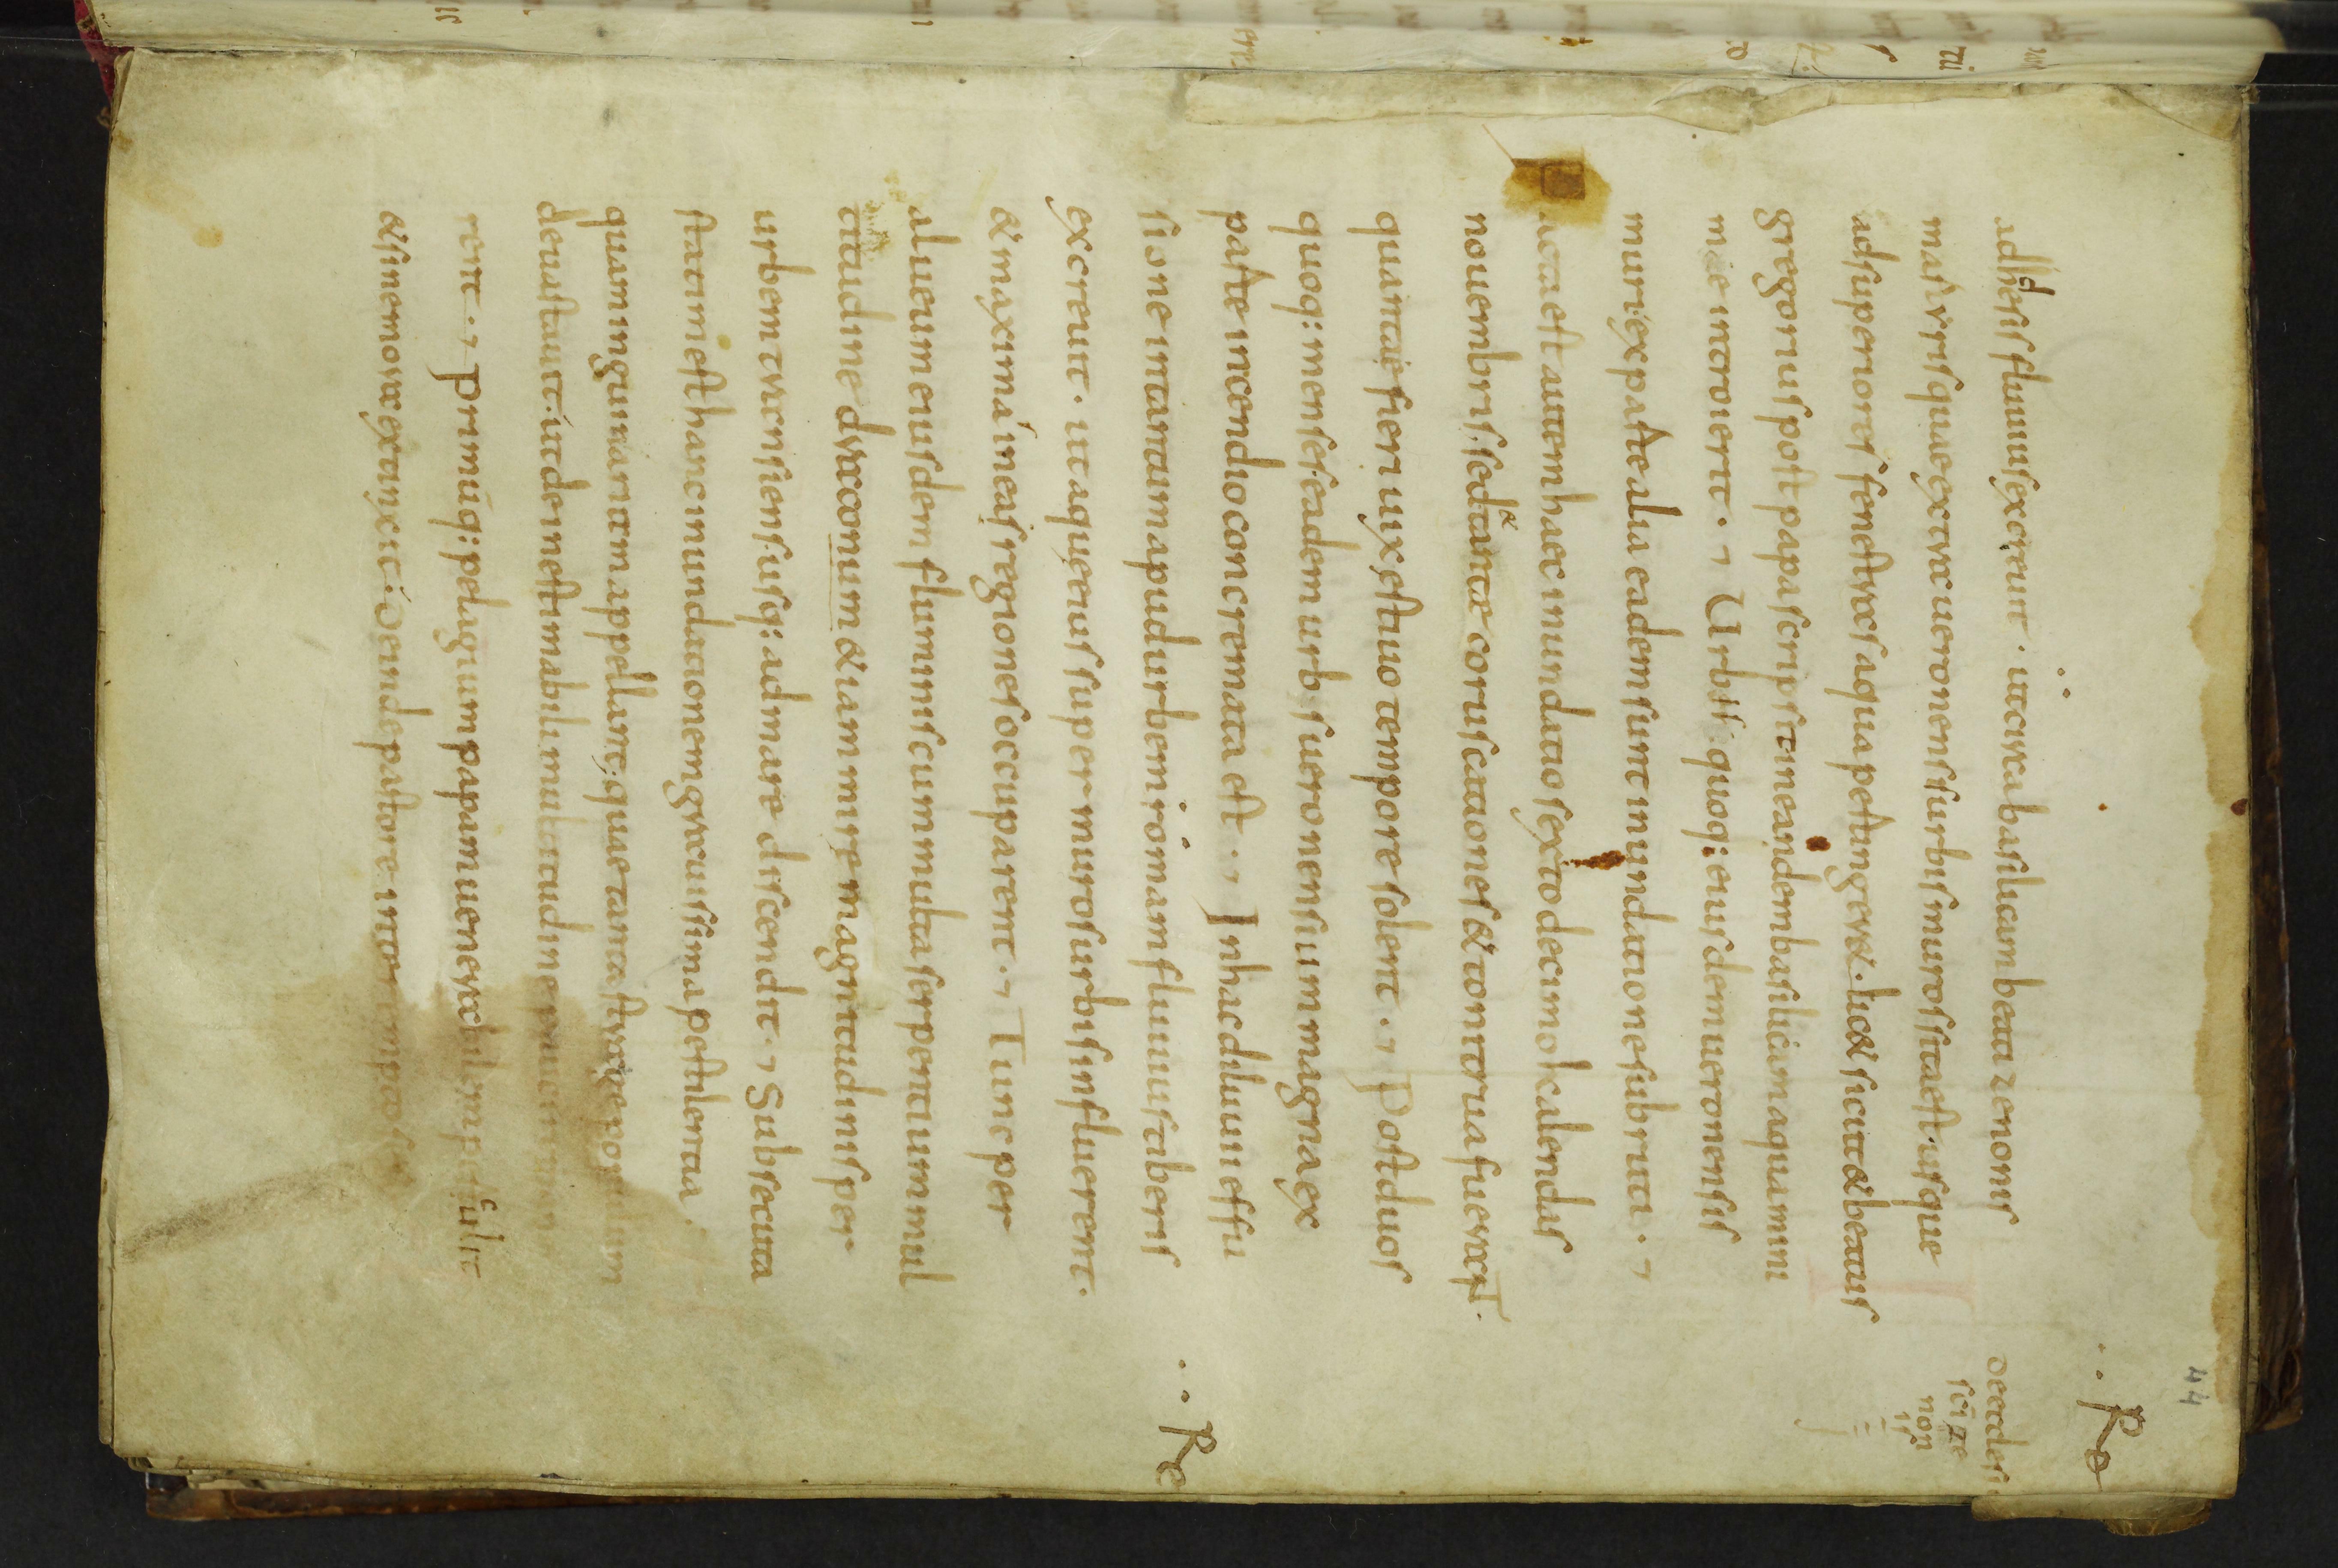 44
Re
de eccłesi
sci ze
non
is
adhesis fluuius excreuit · ut circa basilicam beati zenonis
martyris quae extra ueronensis urbis muros sita est · usque
ad superiores fenestras aqua pertingeret · licet sicut et beatus
gregorius post papa scripsit in eandem basilicam aqua mini
mae introierit · Urbis quoq; eiusdem ueronensis
muri ex parte alia eadem sunt inundatione subruti ·
est autem haec inundatio sexto decimo kalendas
nouembris · sed et tante coruscationes et tonitrua fuerunt ·
quantae fieri uix estiuo tempore solent · Post duos
quoq; menses eadem urbs ueronensium magna ex
parte incendio concremata est · In hac diluuii effu
sione in tantum apud urbem romam fluuius tiberis
Re
excreuit · ut aque eius super muros urbis influerent ·
et maxima in ea regiones occuparent · Tunc per
alueum eiusdem fluminis cum multa serpentium mul
titudine draconum etiam mire magnitudinis per
urbem transiens · usq; ad mare discendit · Subsecuta
statim est hanc inundationem grauissima pestilentia
quam inguinariam appellant; quae tanta strage populum
deuastauit · ut de inestimabili multitudine
rent · Primuq; pelagium papam uenerabilem
et sine mora extinxit · deinde pastore